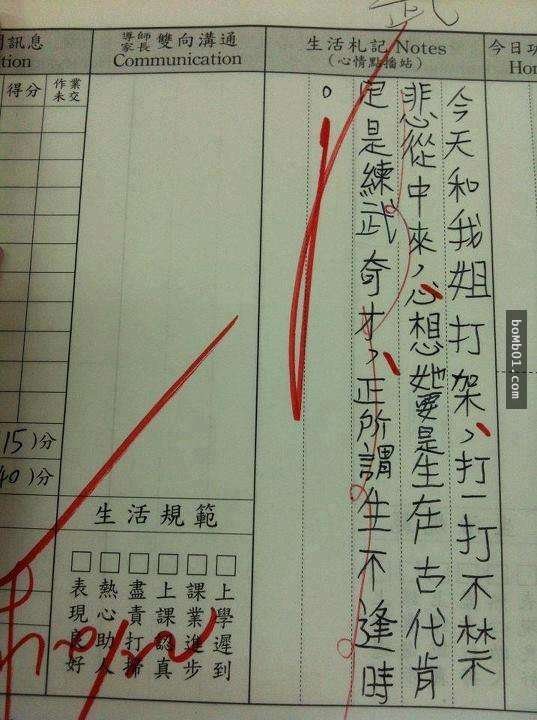 武
訊息
tion
得分
作業未交
15)分
40)分
導師
家長
雙向溝通
Communication
生活札記 Notes
(心情點播站)
今日
Hor
今天和我姐打架,打一打不禁
悲從中來,心想她要是生在古代肯
定是練武奇才,正所謂生不逢時
。
生活規範
上學遲到
課業進步
上課認真
盡責打掃
熱心助人
表現良好
boMb01.com